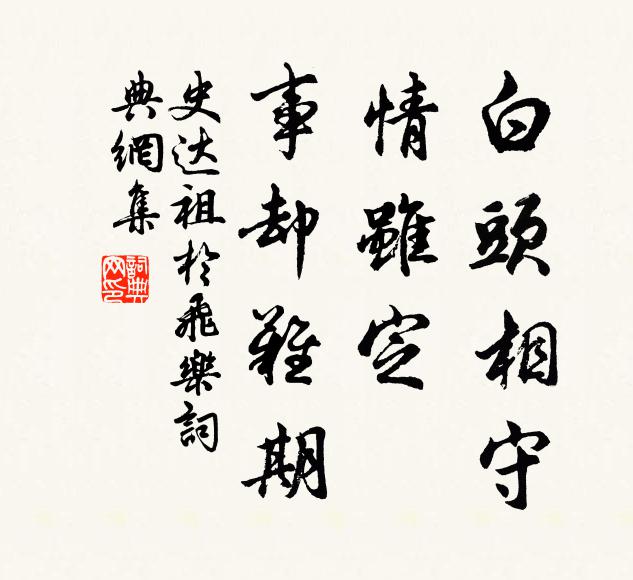 白頭相守
情雖定
事却難期
史达祖於飛樂詞
典網集
詞典
网印